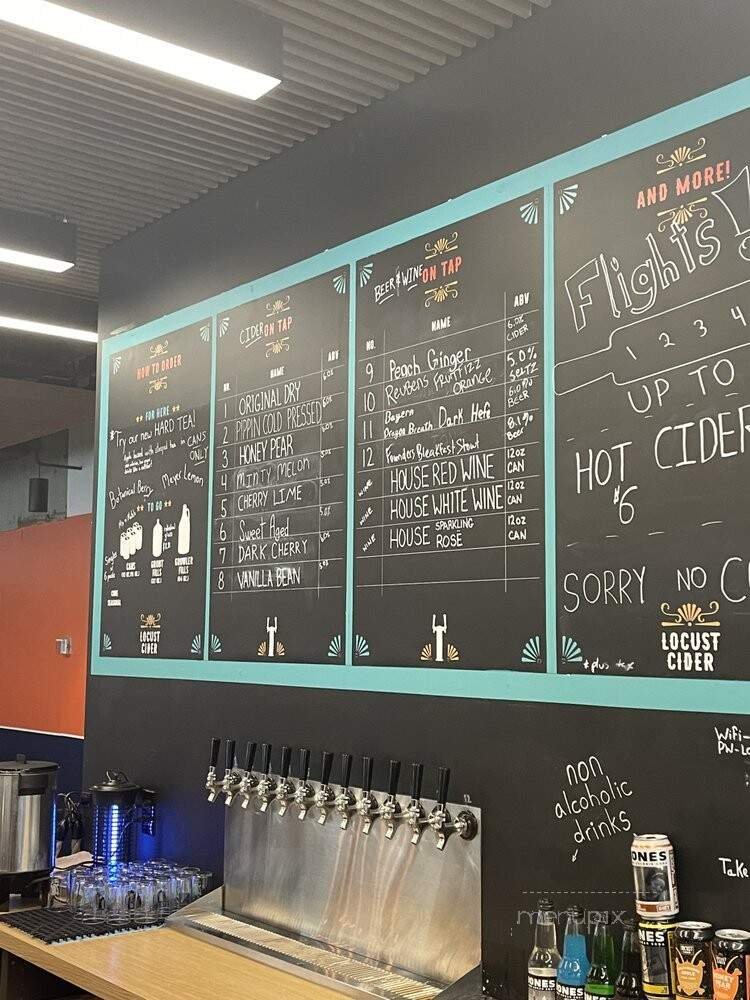 HOW TO ORDER
FOR HERE
*Try our new HARD TEA!
in CANS
ONLY
Botanical Berry
Meyer Lemon
TO GO
CANS
GROWLER
FILLS
LOCUST
CIDER
CIDER ON TAP
NO. NAME ABV
1 ORIGINAL DRY
2 PIPPIN COLD PRESSED
3 HONEY PEAR
4 MINTY MELON
5 CHERRY LIME
6 Sweet Aged
7 DARK CHERRY
8 VANILLA BEAN
BEER & WINE ON TAP
NO. NAME ABV
9 Peach Ginger 6.0% CIDER
10 Reubens FRUTTIZZ ORANGE 5.0% SELTZ
11 Bayern Dragon Breath Dark Hefe BEER
12 Founders Breakfast Stout 8.1% Beer
WINE HOUSE RED WINE 12oz CAN
WINE HOUSE WHITE WINE 12oz CAN
WINE HOUSE SPARKLING ROSE 12oz CAN
AND MORE!
Flights!
1 2 3 4
UP TO
HOT CIDER
$6
SORRY NO
LOCUST
CIDER
*plus tax
Wifi-
non
alcoholic
drinks
Take
ONES
NES
menupix